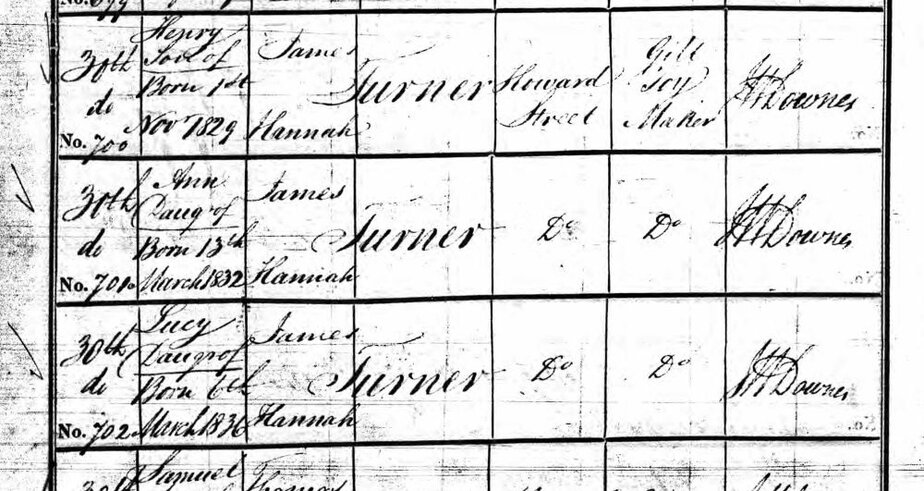 No. 699
30th
do
No. 700
Henry
Son of
Born 1st
Novr 1829
James
Hannah
Turner
Howard
Street
Gilt
Toy
Maker
JH Downes
30th
do
No. 701
Ann
Daugr of
Born 13th
March 1832
James
Hannah
Turner
Do
Do
JH Downes
30th
do
No. 702
Lucy
Daugr of
Born 6th
March 1836
James
Hannah
Turner
Do
Do
JH Downes
30th
Samuel
Thomas